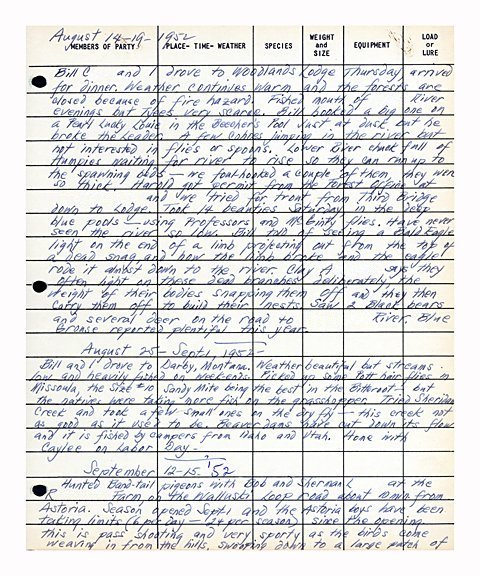 August 14-19- 1952
MEMBERS OF PARTY PLACE- TIME- WEATHER SPECIES WEIGHT and SIZE EQUIPMENT LOAD or LURE
Bill C and I drove to Woodlands Lodge Thursday, arrived
for dinner. Weather continues warm and the forests are
closed because of fire hazard. Fished mouth of River
evenings but fish very scarce. Bill hooked a big one on
a Pearl Lucky Louie in the Pool just at dusk but he
broke the Leader. A few Cohoes jumping in the river but
not interested in flies or spoons. Lower River chuck full of
Humpies waiting for river to rise so they can run up to
the spawning beds — we foul-hooked a couple of them, they were
so thick. Harold got permit from the Forest Office at
and we tried for trout from Third Bridge
down to Lodge. Took 14 beauties Saturday in the deep
blue pools — using Professors and McGinty flies. Have never
seen the river so low. Bill told of seeing a Bald Eagle
light on the end of a limb projecting out from the top of
a dead snag, and how the limb broke and the eagle
rode it almost down to the river. Clay A says they
often light on these dead branches deliberately, the
weight of their bodies snapping them off and they then
carry them off to build their nests. Saw 2 Black bears
and several deer on the road to River. Blue
Grouse reported plentiful this year.
August 25 - Sept 1, 1952 -
Bill and I drove to Darby, Montana. Weather beautiful but streams
low and heavily fished on weekends. Picked up some Pott fair flies in
Missoula, the Size #10 Sandy Mite being the best in the Bitteroot — but
the natives were taking more fish on the grasshopper. Tried Sheridan
Creek and took a few small ones on the dry fly — this creek not
as good as it used to be. Beaver dams have cut down its flow
and it is fished by campers from Idaho and Utah. Home with
Caylee on Labor Day -
September 12-15, '52
Hunted Band-tail pigeons with Bob and Sherman L at the
R Farm on the Walluski Loop road about 10 min from
Astoria. Season opened Sept 1 and the Astoria boys have been
taking limits (6 per day — 24 per season) since the opening.
this is pass shooting and very sporty as the birds come
weaving in from the hills, swooping down to a large patch of